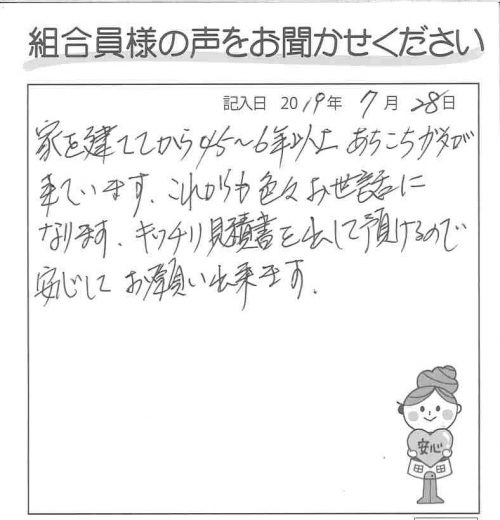 組合員様の声をお聞かせください
記入日 2019年 7月 28日
家を建ててから45〜6年以上あちこちガタが
来ています。これからも色々お世話に
なります。キッチリ見積書を出して頂けるので
安心してお願い出来ます。
安心